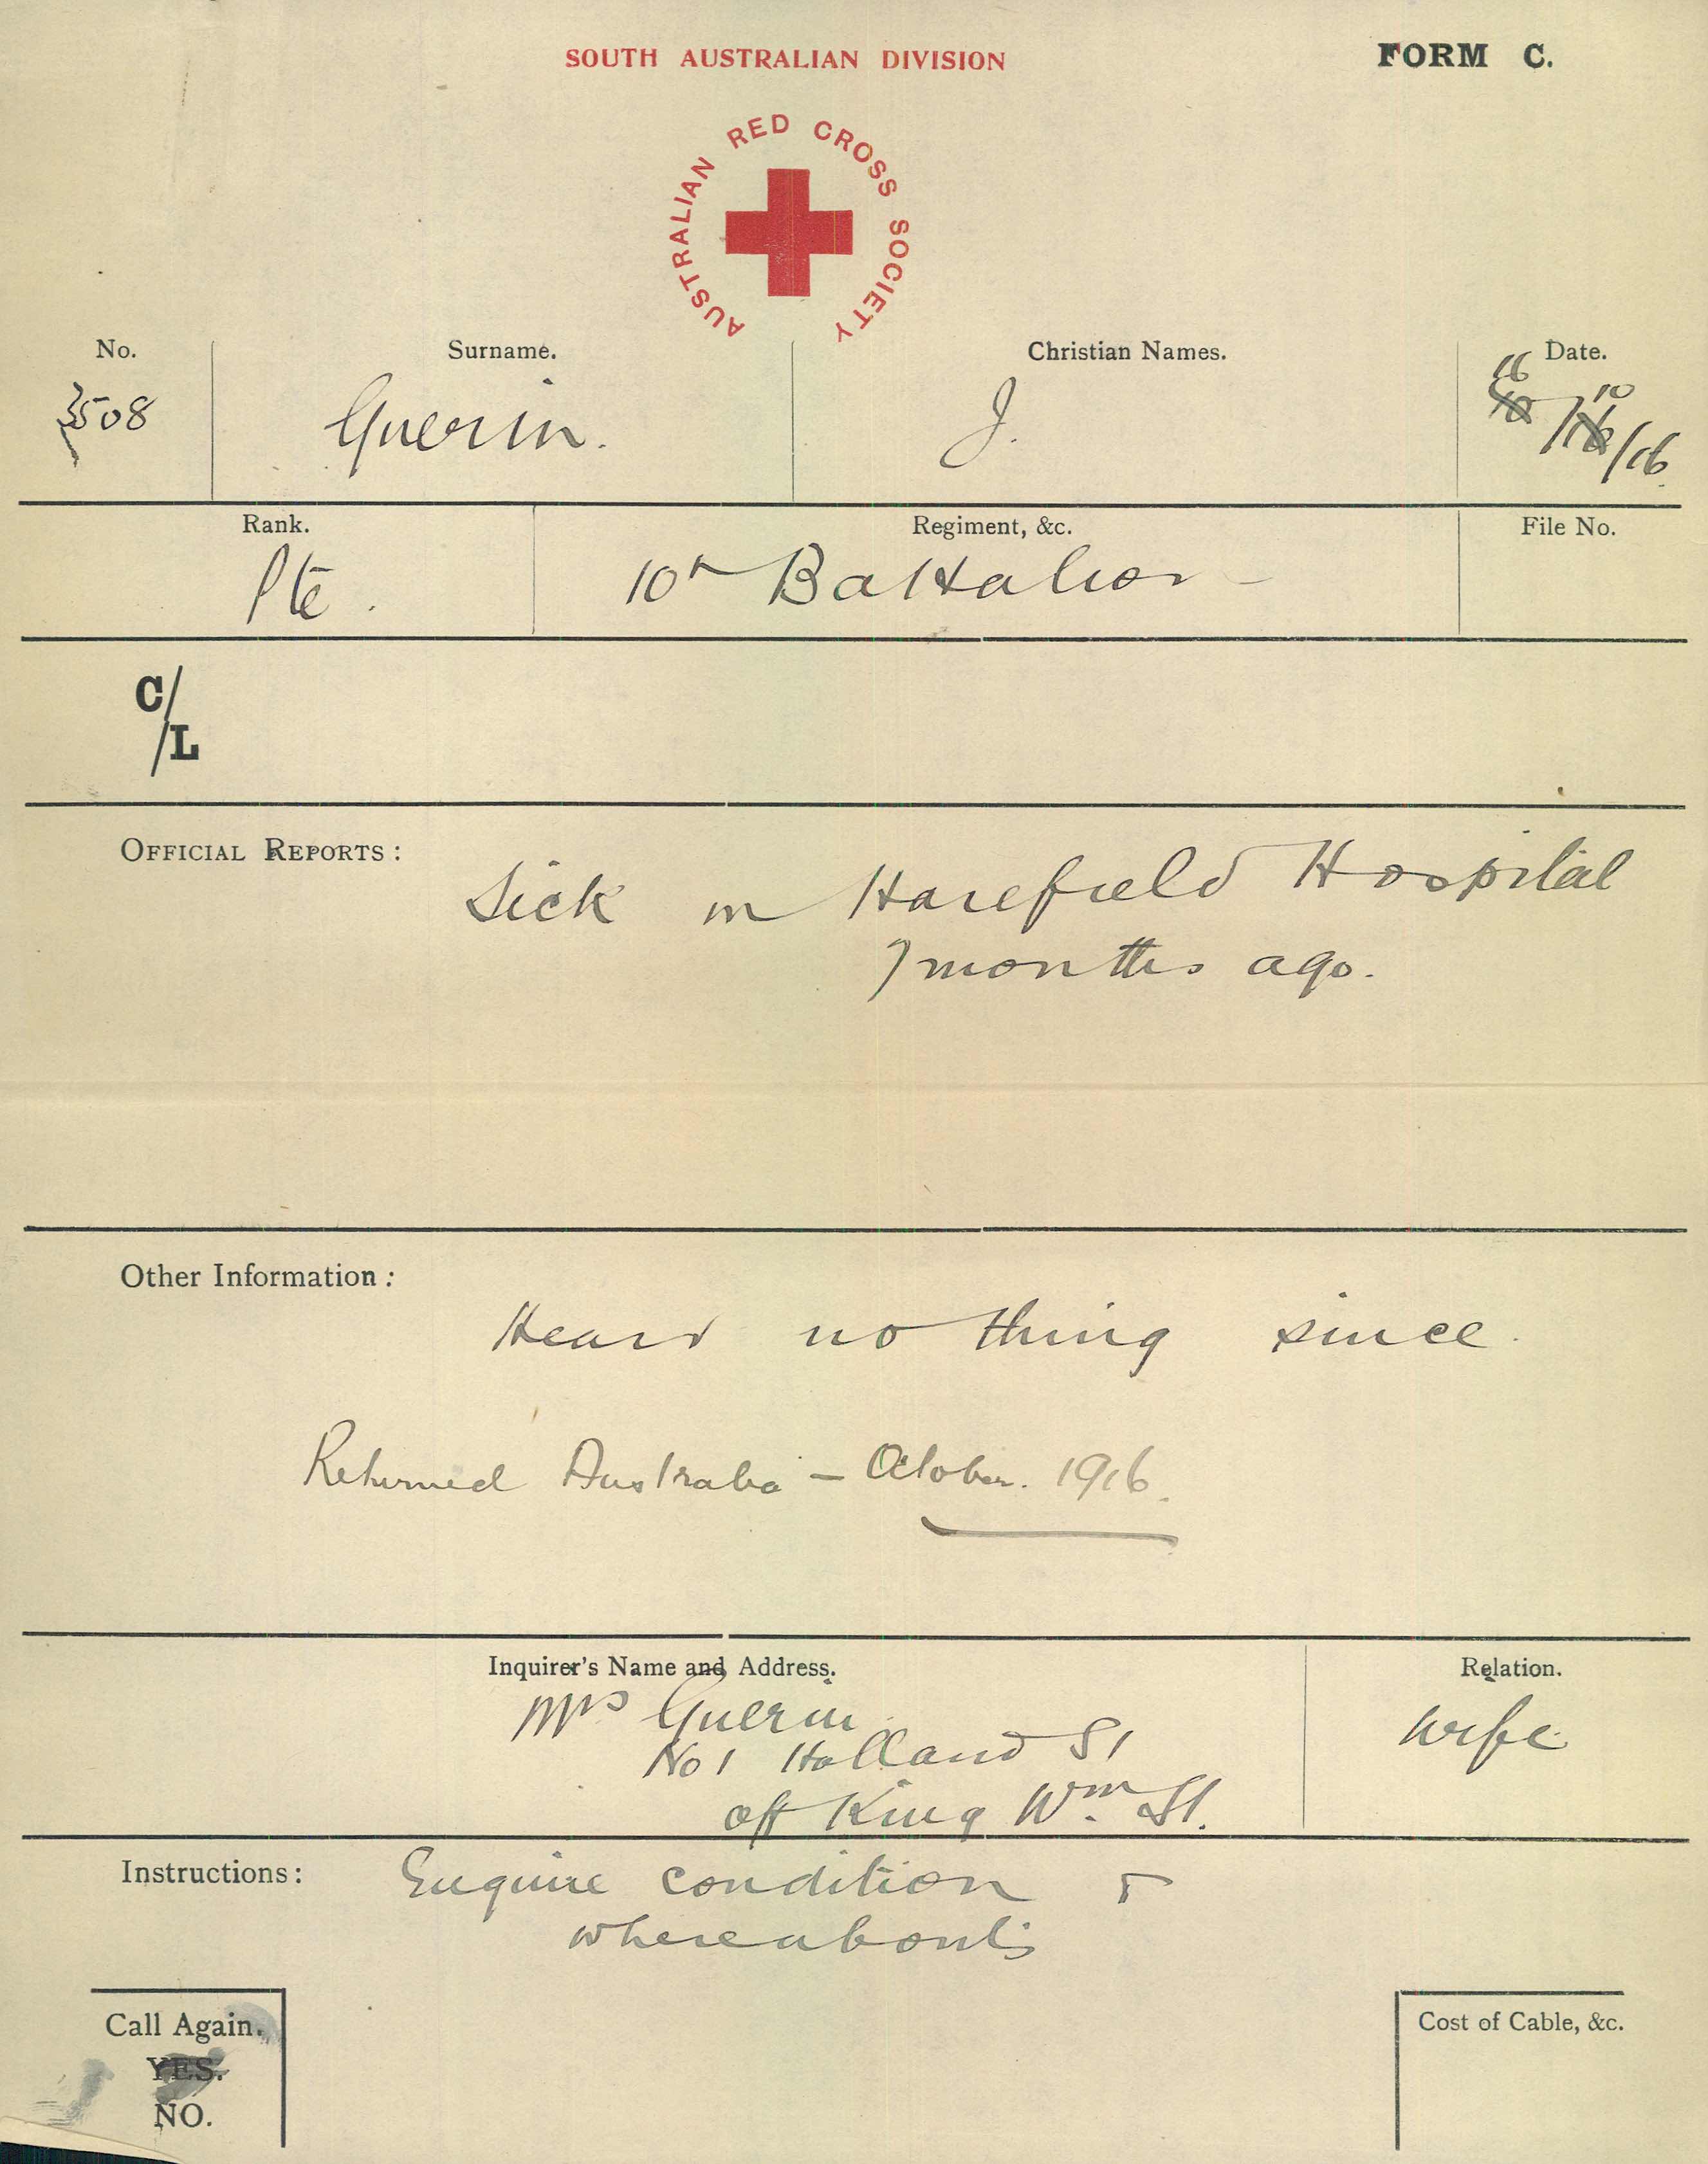 SOUTH AUSTRALIAN DIVISION
FORM C.
AUSTRALIAN RED CROSS SOCIETY
No. Surname. Christian Names. Date.
3508 Guerin. J. 16/10/16.
Rank. Regiment, &c. File No.
Pte. 10th Battalion -
C/L
OFFICIAL REPORTS:
Sick in Harefield Hospital
7 months ago.
Other Information:
Heard nothing since.
Returned Australia - October. 1916.
Inquirer's Name and Address. Relation.
Mrs Guerin. Wife.
No 1 Holland St
off King Wm. St.
Instructions: Enquire condition &
whereabouts
Call Again. Cost of Cable, &c.
YES.
NO.